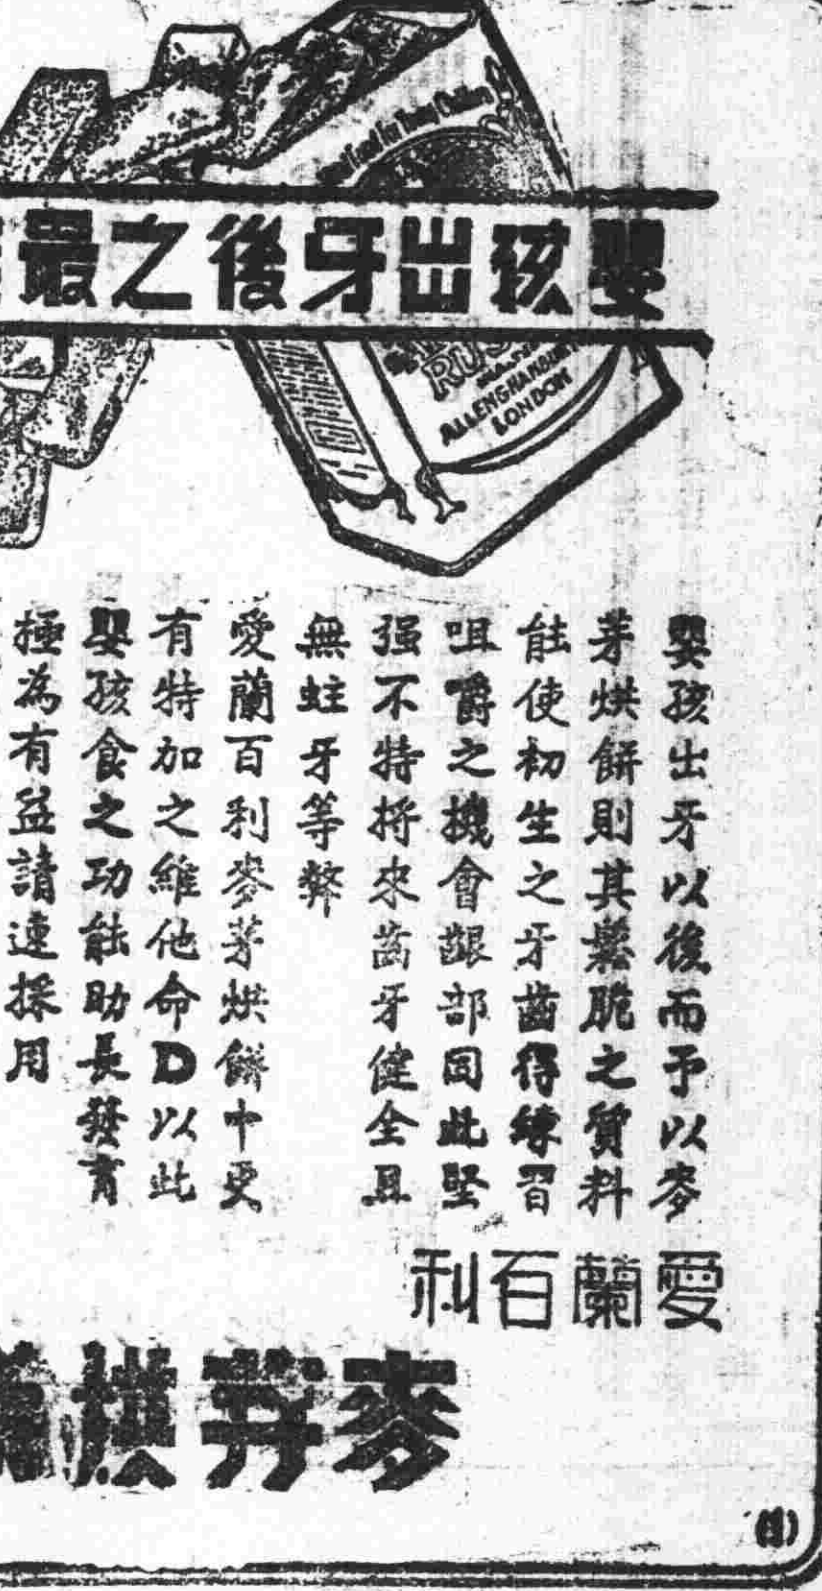 for Young Children
嬰孩出牙後之最
RUS
ALLEN & HANBURYS
LONDON
嬰孩出牙以後而予以麥
芽烘餅則其鬆脆之質料
能使初生之牙齒得練習
咀嚼之機會齦部因此堅
强不特將來齒牙健全且
無蛀牙等弊
愛蘭百利麥芽烘餅中更
有特加之維他命D以此
嬰孩食之功能助長發育
極為有益請速採用
愛蘭百利
麥芽烘
(1)